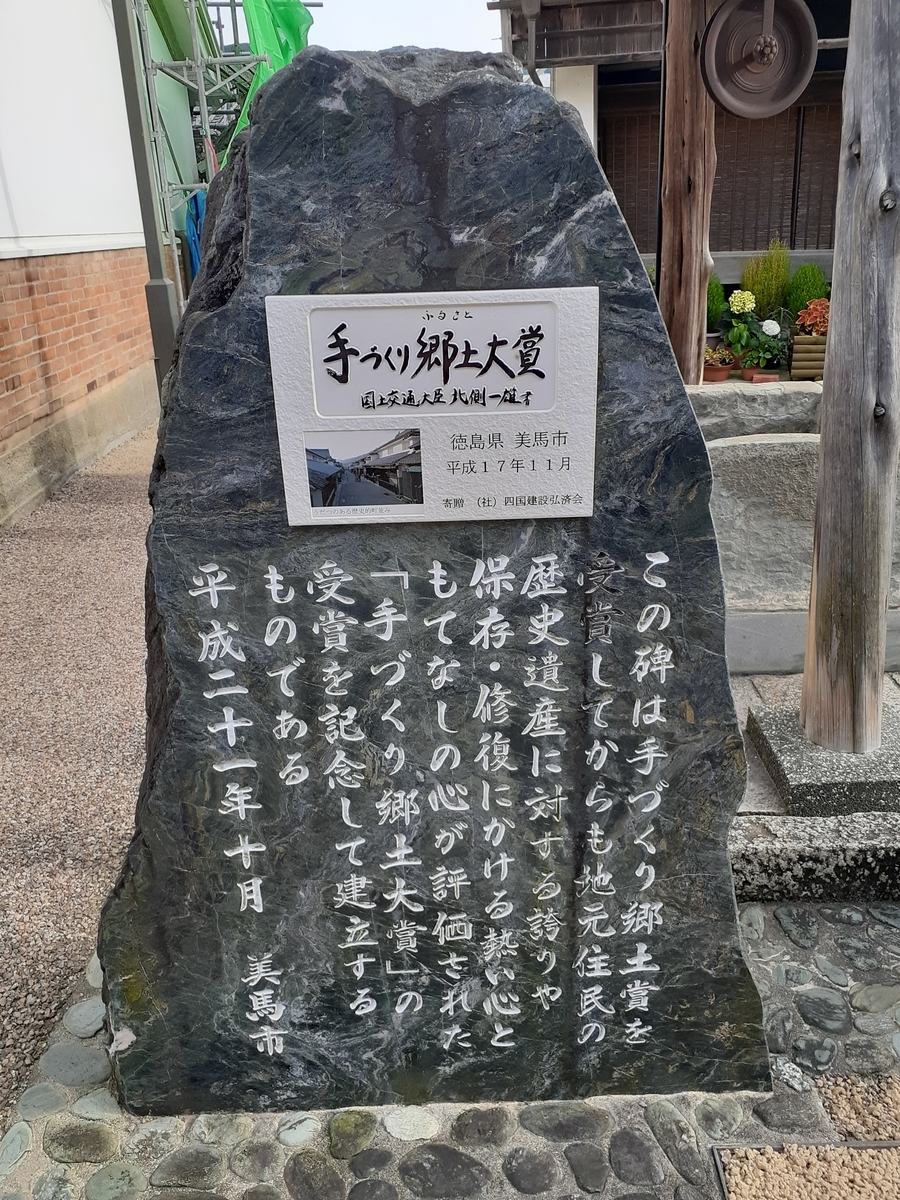 ふるさと
手づくり郷土大賞
国土交通大臣 北側一雄書
徳島県 美馬市
平成17年11月
うだつのある歴史的町並み
寄贈 (社)四国建設弘済会
この碑は手づくり郷土賞を
受賞してからも地元住民の
歴史遺産に対する誇りや
保存・修復にかける熱い心と
もてなしの心が評価された
「手づくり郷土大賞」の
受賞を記念して建立する
ものである
平成二十一年十月 美馬市